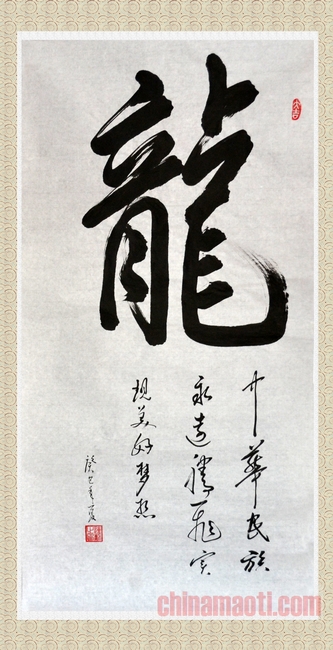 龍
中華民族
永遠騰飛实
現美好梦想
癸巳年夏
chinamaoti.com